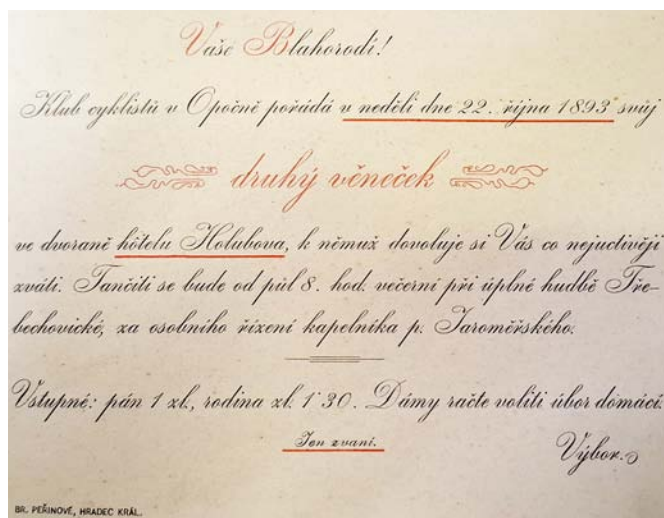 Vaše Blahorodí!
Klub cyklistů v Opočně pořádá v neděli dne 22. října 1893 svůj
druhý věneček
ve dvoraně hôtelu Holubova, k němuž dovoluje si Vás co nejuctivěji
zváti. Tančiti se bude od půl 8. hod. večerní při úplné hudbě Tře-
bechovické, za osobního řízení kapelníka p. Jaroměřského.
Vstupné: pán 1 zl., rodina zl. 1·30. Dámy račte voliti úbor domácí.
Jen zvaní.
Výbor.
BR. PEŘINOVÉ, HRADEC KRÁL.